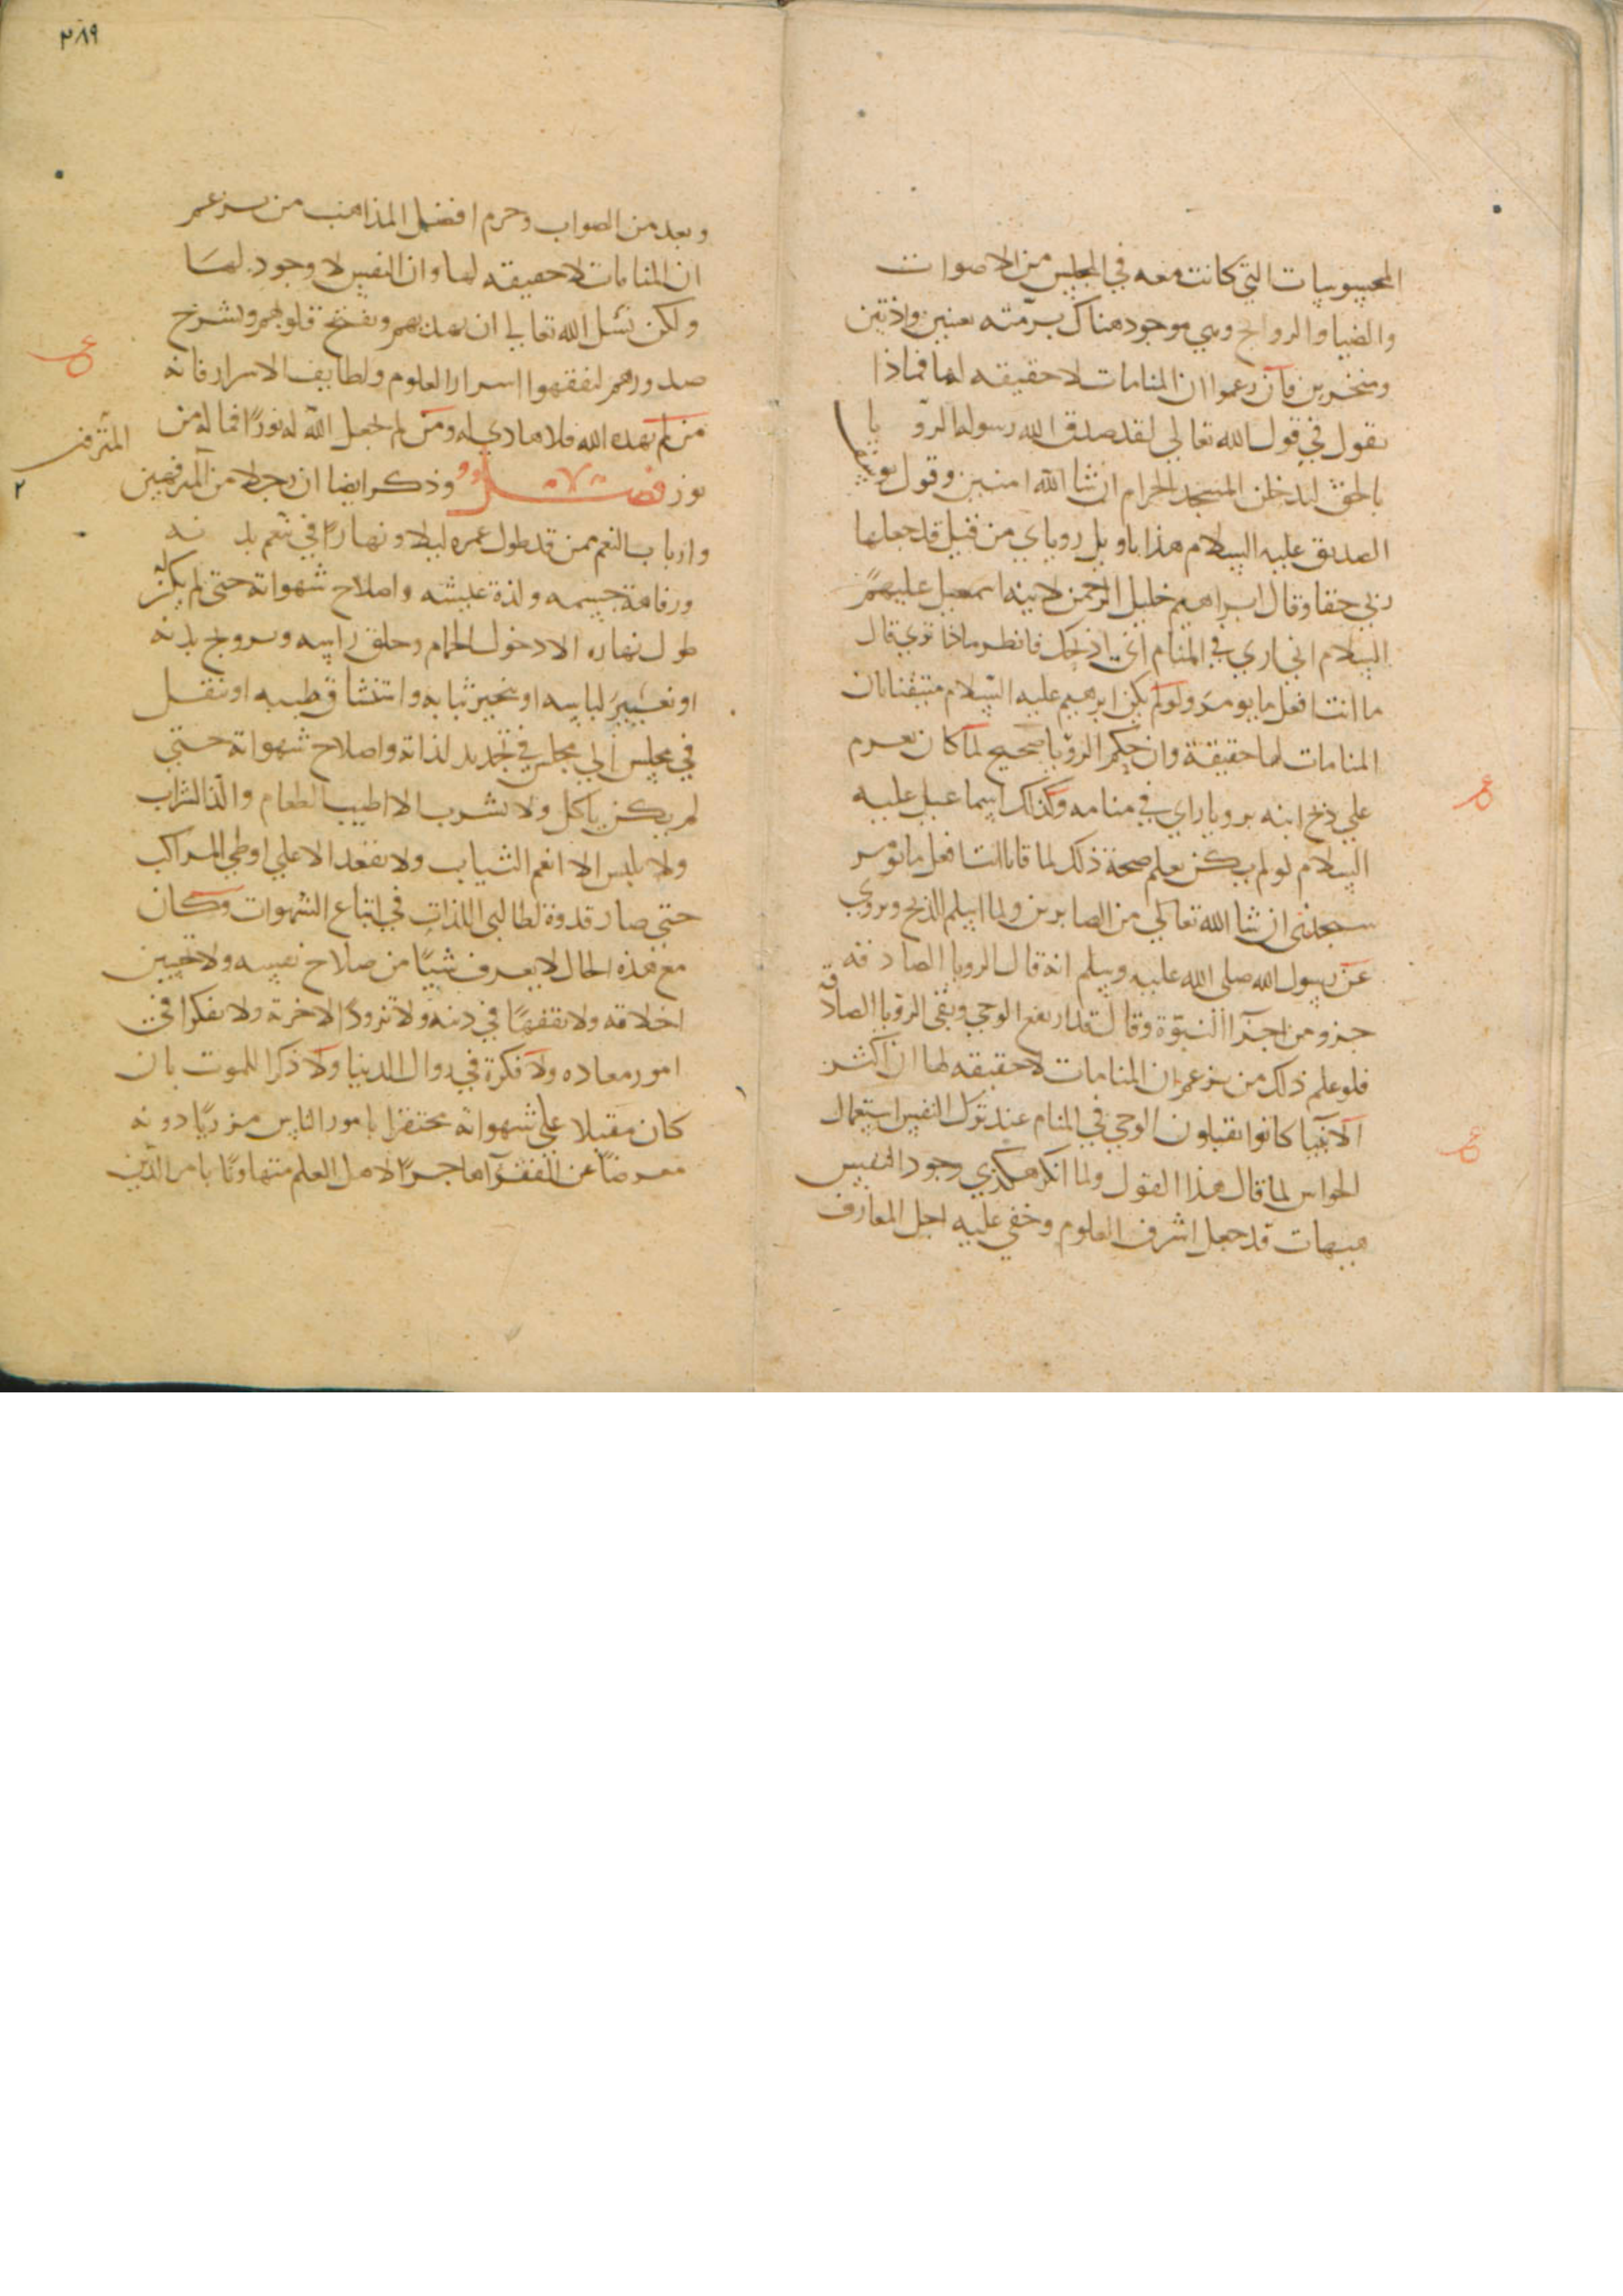 المحسوسات التي كانت معه في المجلس من الاصوات
والضيا والروايح وهي موجود هناك برمته بعينين واذنين
ومنخرين فان زعموا ان المنامات لا حقيقه لها فماذا
يقول في قول الله تعالي لقد صدق الله رسوله الرؤيا
بالحق لتدخلن المسجد الحرام ان شا الله امنين وقول يوسف
الصديق عليه السلام هذا تاويل روياي من قبل قد جعلها
ربي حقا وقال ابراهيم خليل الرحمن لابنه اسمعيل عليهم
السلام اني اري في المنام اني اذبحك فانظر ماذا تري قال
يا ابت افعل ما تومر ولو لم يكن ابرهيم عليه السلام متيقنا بان
المنامات لها حقيقة وان حكم الرؤيا صحيح لما كان يعزم
علي ذبح ابنه برويا راي في منامه وكذلك اسماعيل عليه
السلام لو لم يكن يعلم صحة ذلك لما قال يا ابت افعل ما تؤمر
ستجدني ان شا الله تعالي من الصابرين ولما اسلم للذبح ويروي
عن رسول الله صلى الله عليه وسلم انه قال الرويا الصادقه
جزو من اجزآ النبوة وقال قد ارتفع الوحي وبقي الرؤيا الصادقة
فلو علم ذلك من يزعم ان المنامات لا حقيقه لها ان اكثر
الانبيا كانوا يقبلون الوحي في المنام عند ترك النفس استعمال
الحواس لما قال هذا القول ولما انكر وجود النفس
هيهات قد جهل اشرف العلوم وخفي عليه اجل المعارف
٣٨٩
وبعد من الصواب وحرم افضل المذاهب من يزعم
ان المنامات لا حقيقه لها وان النفس لا وجود لها
ولكن نسل الله تعالي ان يهديهم ويفتح قلوبهم ويشرح
صدورهم ليفقهوا اسرار العلوم ولطايف الاسرار فانه
من لم يهده الله فلا هادي له ومن لم يجعل الله له نورًا فما له من
نور فصل وذكر ايضا ان رجلا من المترفهين
المترفين
وارباب النعم ممن قد طول عمره ليلا ونهارًا في تنعم بدنه
ورفاهة جسمه ولذة عيشه واصلاح شهواته حتي لم يكن له
طول نهاره الا دخول الحمام وحلق راسه وتمريخ بدنه
او تغيير لباسه او تبخير ثيابه واستنشاق طيبه او تنقل
في مجلس الي مجلس في تجديد لذاته واصلاح شهواته حتي
لم يكن ياكل ولا يشرب الا اطيب الطعام والذ الشراب
ولا يلبس الا انعم الثياب ولا يقعد الا علي اوطي المراكب
حتي صار قدوة لطالبي اللذات في اتباع الشهوات وكان
مع هذه الحال لا يعرف شيًا من صلاح نفسه ولا تحسين
اخلاقه ولا تفقهًا في دينه ولا تزودًا لاخرته ولا تفكرا في
امور معاده ولا فكرة في زوال الدنيا ولا ذكرا للموت بان
كان مقبلا علي شهواته محتقرا بامور الناس مزريًا دونه
معرضًا عن الفقرآ هاجرًا لاهل العلم متهاونًا بامر الدين